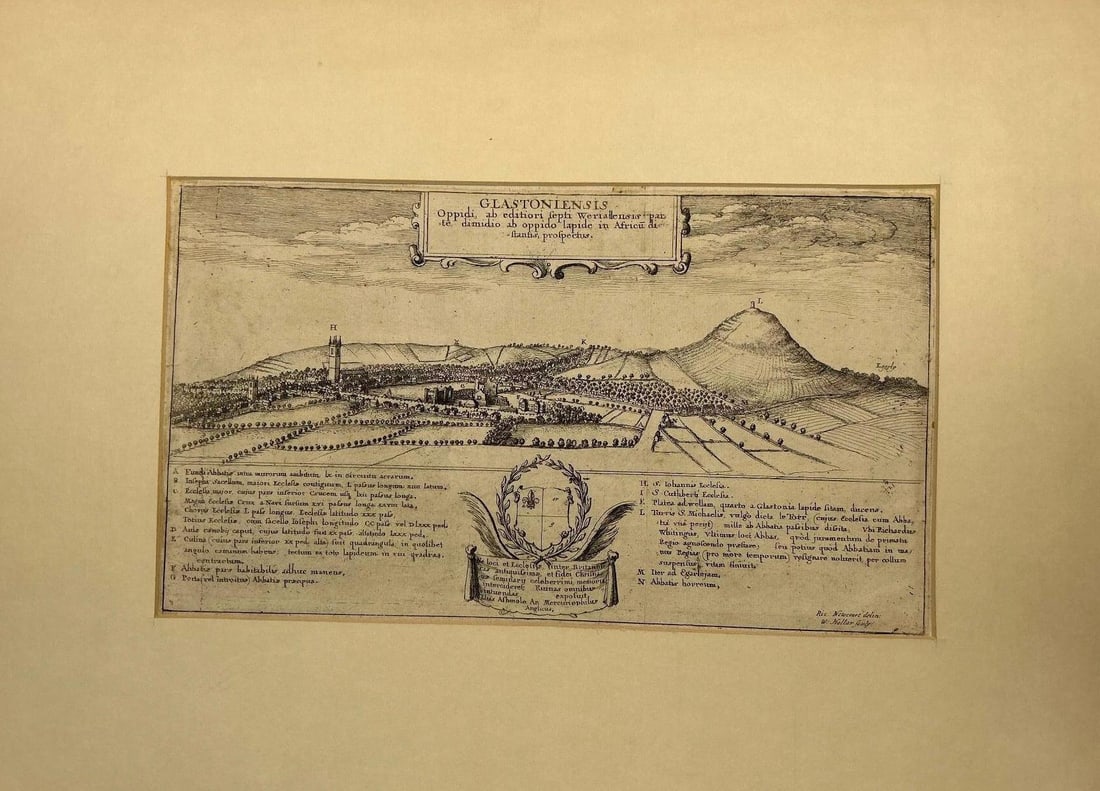 GLASTONIENSIS
Oppidi, ab editiori septi Weriallensis par
te dimidio ab oppido lapide in Africũ di
stantis, prospectus.
H
L
K
G
Egarly
A Fundi Abbatis intra murorum ambitum lx in circuitu acrarum.
B Iosephi Sacellum maiori Ecclesiæ contiguum, L passus longum: xiii latum,
C Ecclesia major, cuius pars inferior Crucem usq̃ lxii passus longa.
Magna Ecclesiæ Crux a Navi sursum xvi passus longa xxvii lata,
Chorus Ecclesiæ L pass longus. Ecclesiæ latitudo xxx pass,
Totius Ecclesiæ, cum sacello Iosephi longitudo CC pass vel Dlxxx ped,
D Aula caput, cujus latitudo fuit xx pass, altitudo lxxx ped,
E Culina (cuius pars inferior xx ped, alta) fuit quadrangula; in quolibet
angulo caminum habens: tectum ex toto lapideum in viii quadras,
contractum.
F Abbatiæ pars habitabilis adhuc manens,
G Porta (vel introitus) Abbatiæ præcipua.
loci et Ecclesiæ inter Britann
antiquissimæ, et fidei Christi
seminarij celeberrimi, memoria
intercideret Ruinas omnibus
intuendas, exposuit;
Elias Ashmole Ar. Mercuriophilus
Anglicus,
H S. Iohannis Ecclesia.
I S Cuthberti Ecclesia.
K Platea ad wellam, quarto a Glastonia lapide sitam, ducens.
L Turris S. Michaelis, vulgo dicta le Torr, (cujus Ecclesia cum Abba,
tia unà periit) mille ab Abbatia passibus dissita. Vbi Richardus
Whitingus, Vltimus loci Abbas, quòd juramentum de primatu
Regio agnoscendo præstare; seu potius quod Abbatiam in ma,
nus Regias (pro more temporum) resignare noluerit, per collum
suspensus, vitam finivit.
M Iter ad Egarleiam,
N Abbatiæ horreum,
Ric. Newcourt delin:
W: Hollar sculp: